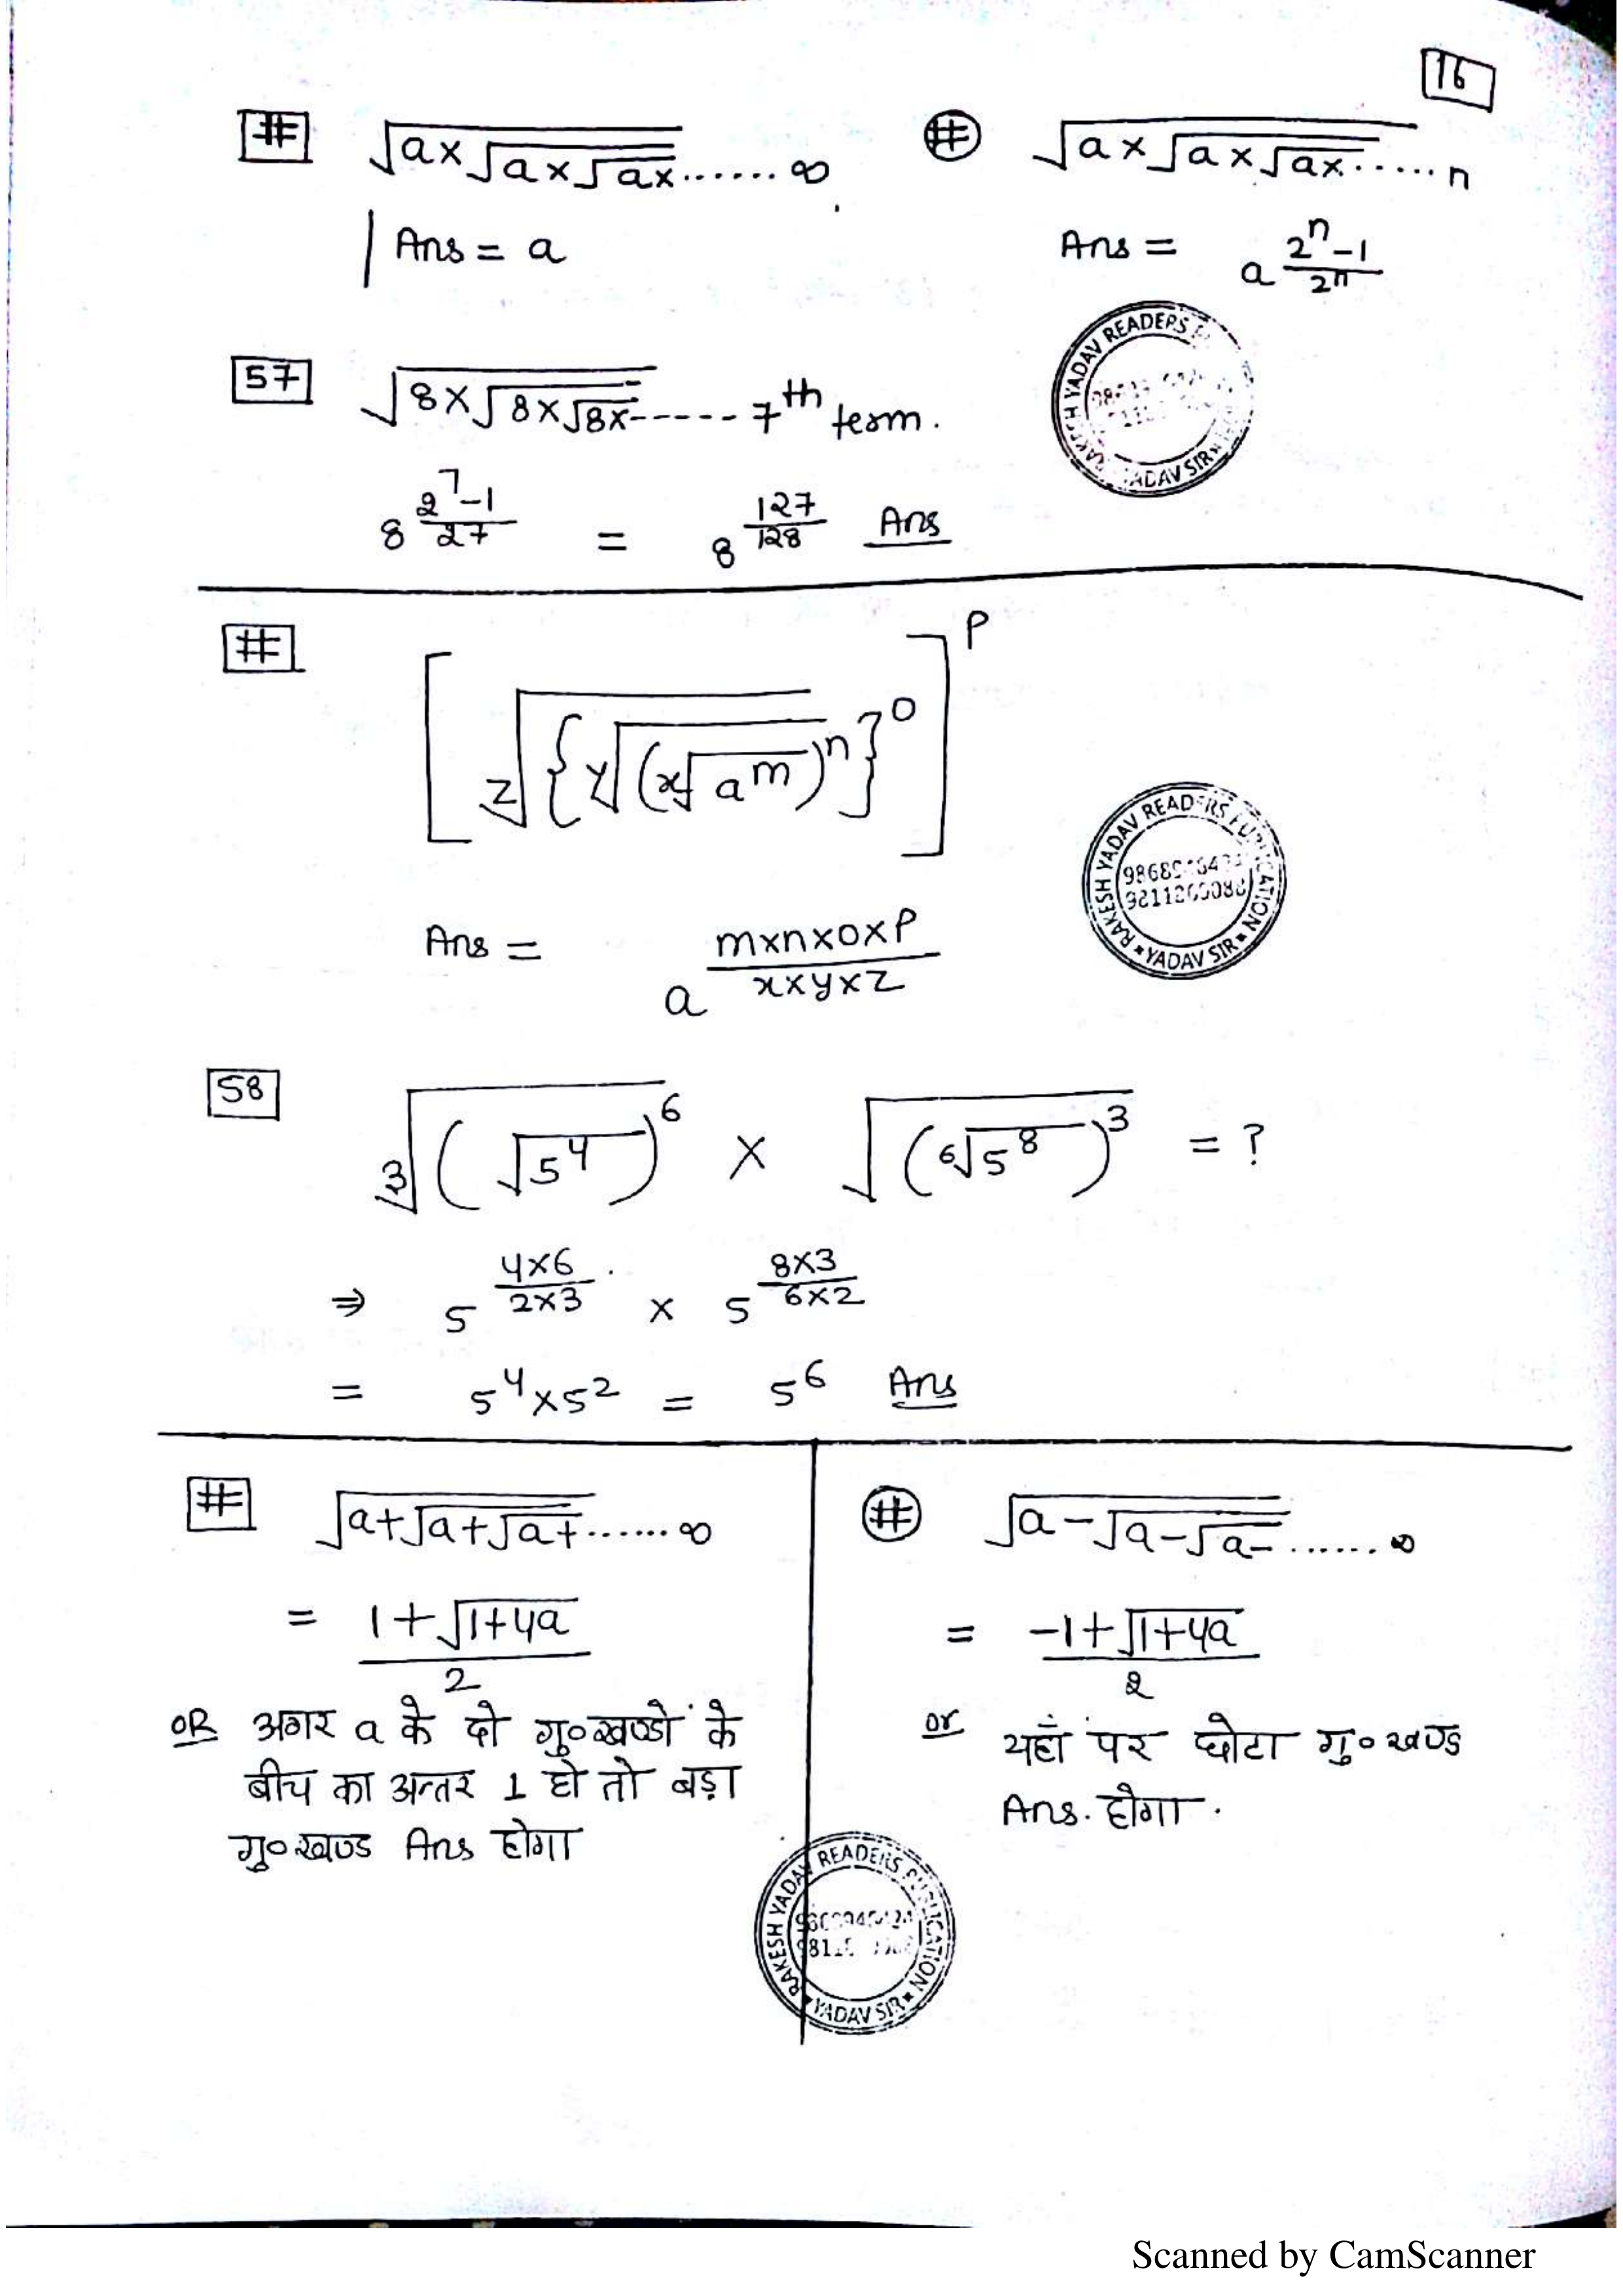 16
# √a×√a×√ax ...... ∞
# √a×√a×√ax ..... n
Ans = a
Ans = a^(2^n-1)/(2^n)
57 √8×√8×√8x ------ 7th term.
8^(2^7-1)/(27) = 8^(127/128) Ans
# [ z√{ y√(x√a^m)^n }^o ]^P
Ans = a^(m×n×o×P)/(x×y×z)
58 3√(√5^4)^6 × √(6√5^8)^3 = ?
⇒ 5^(4×6)/(2×3) × 5^(8×3)/(6×2)
= 5^4×5^2 = 5^6 Ans
# √a+√a+√a+ ...... ∞
= (1+√1+4a)/2
OR अगर a के दो गु०खण्डों के
बीच का अन्तर 1 हो तो बड़ा
गु०खण्ड Ans होगा
# √a-√a-√a- ....... ∞
= (-1+√1+4a)/2
or यहाँ पर छोटा गु०खण्ड
Ans. होगा.
RAKESH YADAV READERS PUBLICATION
YADAV SIR
Scanned by CamScanner